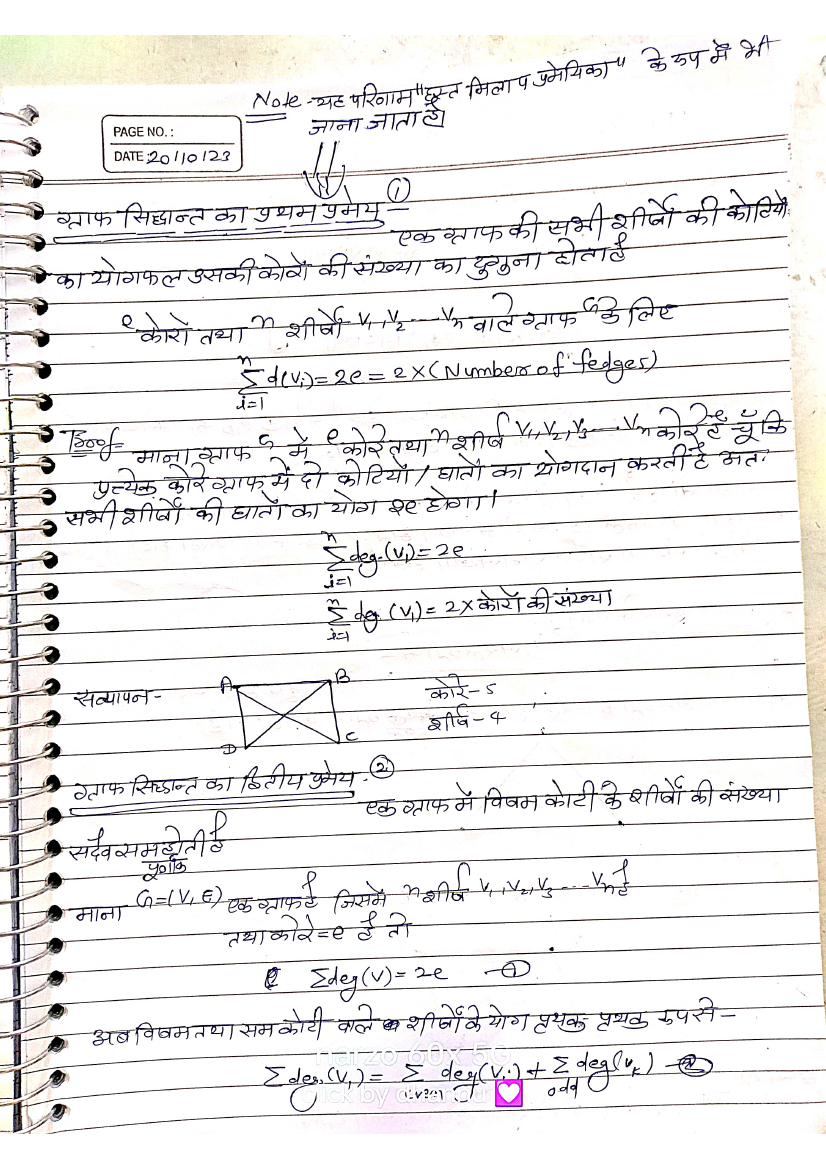 Note - यह परिणाम "हस्त मिलाप प्रमेयिका" के रूप में भी
जाना जाता है।
PAGE NO.:
DATE: 20/10/23
ग्राफ सिद्धान्त का प्रथम प्रमेय - ①
एक ग्राफ की सभी शीर्षों की कोटियों
का योगफल उसकी कोरों की संख्या का दुगुना होता है
e कोरों तथा n शीर्षों V₁, V₂ ---- Vn वाले ग्राफ G के लिए
n
∑ d(Vi) = 2e = 2 × (Number of fedges)
i=1
Proof= माना ग्राफ G में e कोरे तथा n शीर्ष V₁, V₂, V₃ ---- Vn कोरे हैं चूँकि
प्रत्येक कोरे ग्राफ में दो कोटियों / घातों का योगदान करती है अतः
सभी शीर्षों की घातों का योग 2e होगा।
n
∑ deg.(Vi) = 2e
i=1
n
∑ deg (Vi) = 2 × कोरों की संख्या
i=1
सत्यापन -
A B
कोरे - 5
शीर्ष - 4
D C
ग्राफ सिद्धान्त का द्वितीय प्रमेय - ②
एक ग्राफ में विषम कोटी के शीर्षों की संख्या
सदैव सम होती है
माना G=(V, E) एक ग्राफ है जिसमें n शीर्ष V₁, V₂, V₃ ---- Vn है
तथा कोरे = e है तो
∑deg(V) = 2e —①
अब विषम तथा सम कोटी वाले शीर्षों के योग पृथक पृथक रूप से -
∑ deg.(Vi) = ∑ deg(Vj) + ∑ deg(Vk) —②
even odd
narzo 60x 5G